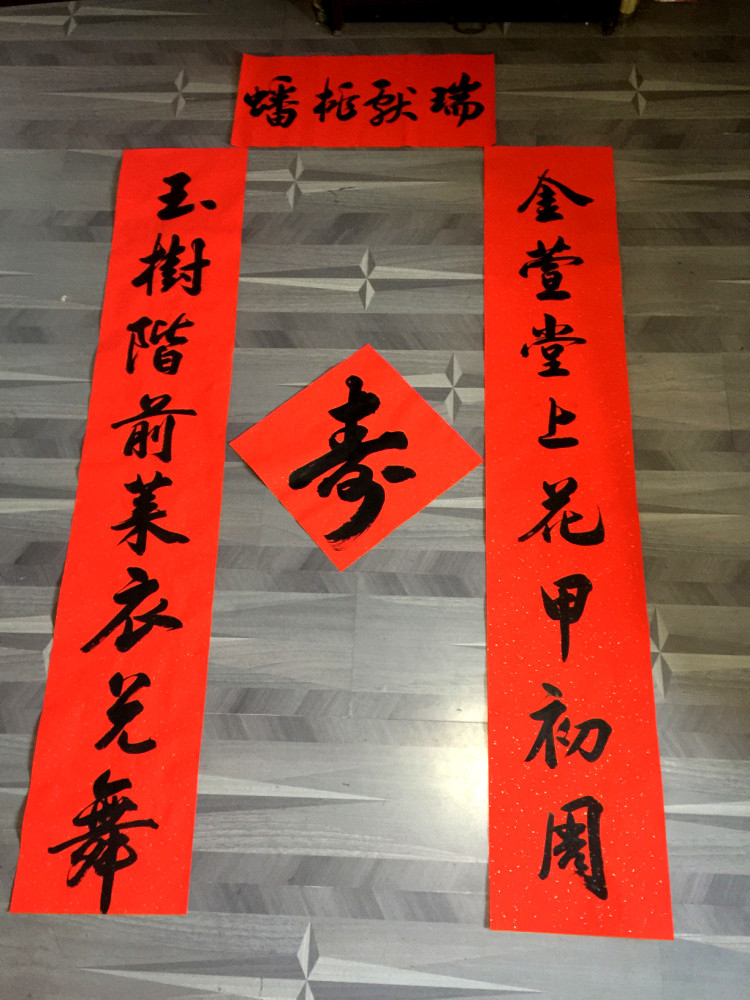 蟠桃献瑞
金萱堂上花甲初周
玉樹階前莱衣竞舞
寿